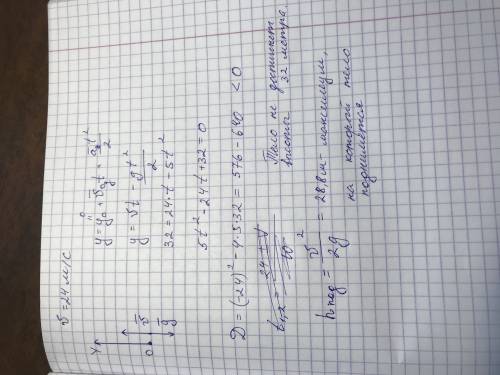 v = 24 м/с
y
0
v
g
y = y₀ + v₀y t + aₓt²/2
0
y = vt - gt²/2
32 = 24·t - 5t²
5t² - 24t + 32 = 0
D = (-24)² - 4·5·32 = 576 - 640 < 0
Тело не достигнет
высоты 32 метра
h под = v²/2g = 28,8м - максимум,
на которой тело
поднимется